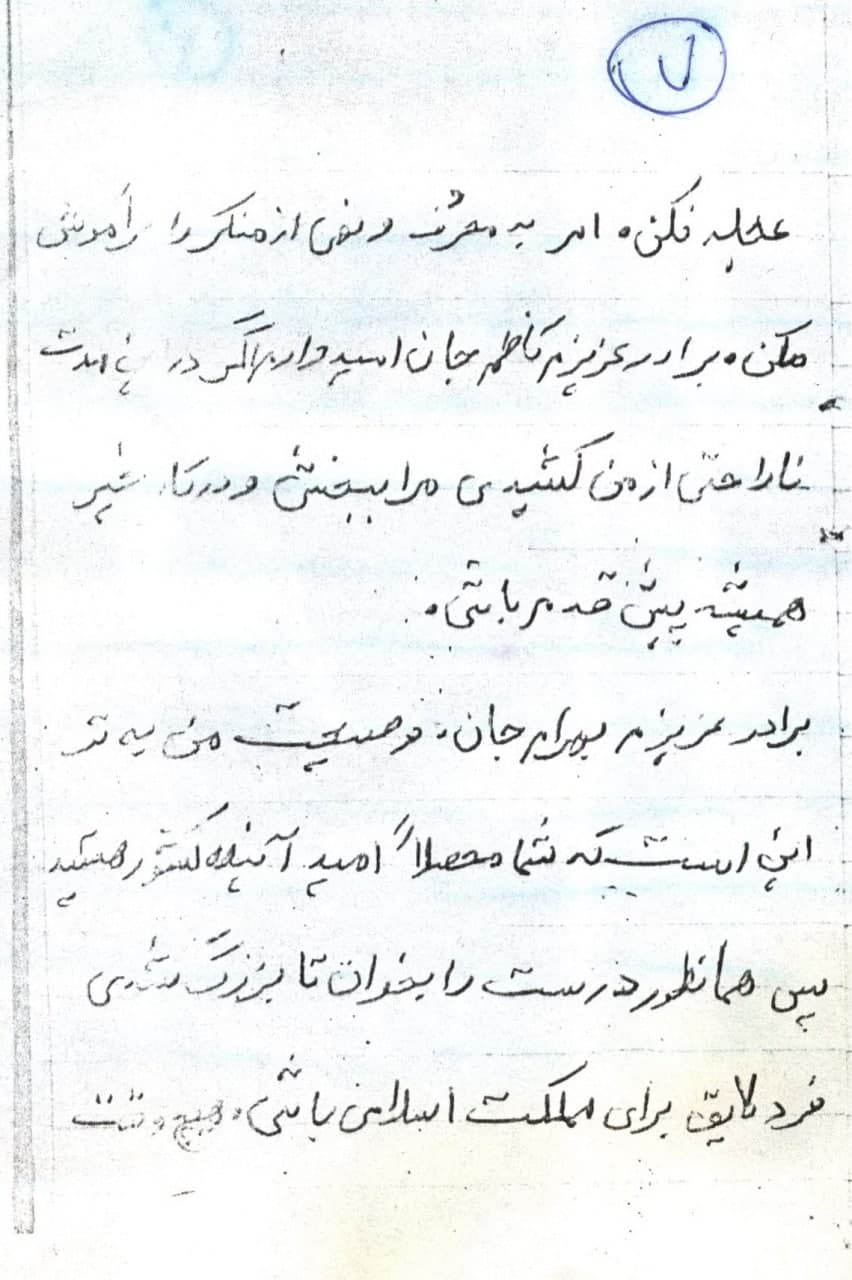 ۷
عجله نکن. امر به معروف و نهی از منکر را فراموش
مکن. برادر عزیزم کاظم جان امیدوارم اگر در این مدت
ناراحتی از من کشیدی مرا ببخش و در کار خیر
همیشه پیش قدم باشی.
برادر عزیزم بهرام جان: وصیت من به تو
این است که شما محصلا امید آینده کشور هستید
پس همانطور درست را بخوان تا بزرگ شدی
فرد لایق برای مملکت اسلامی باشی. هیچ وقت